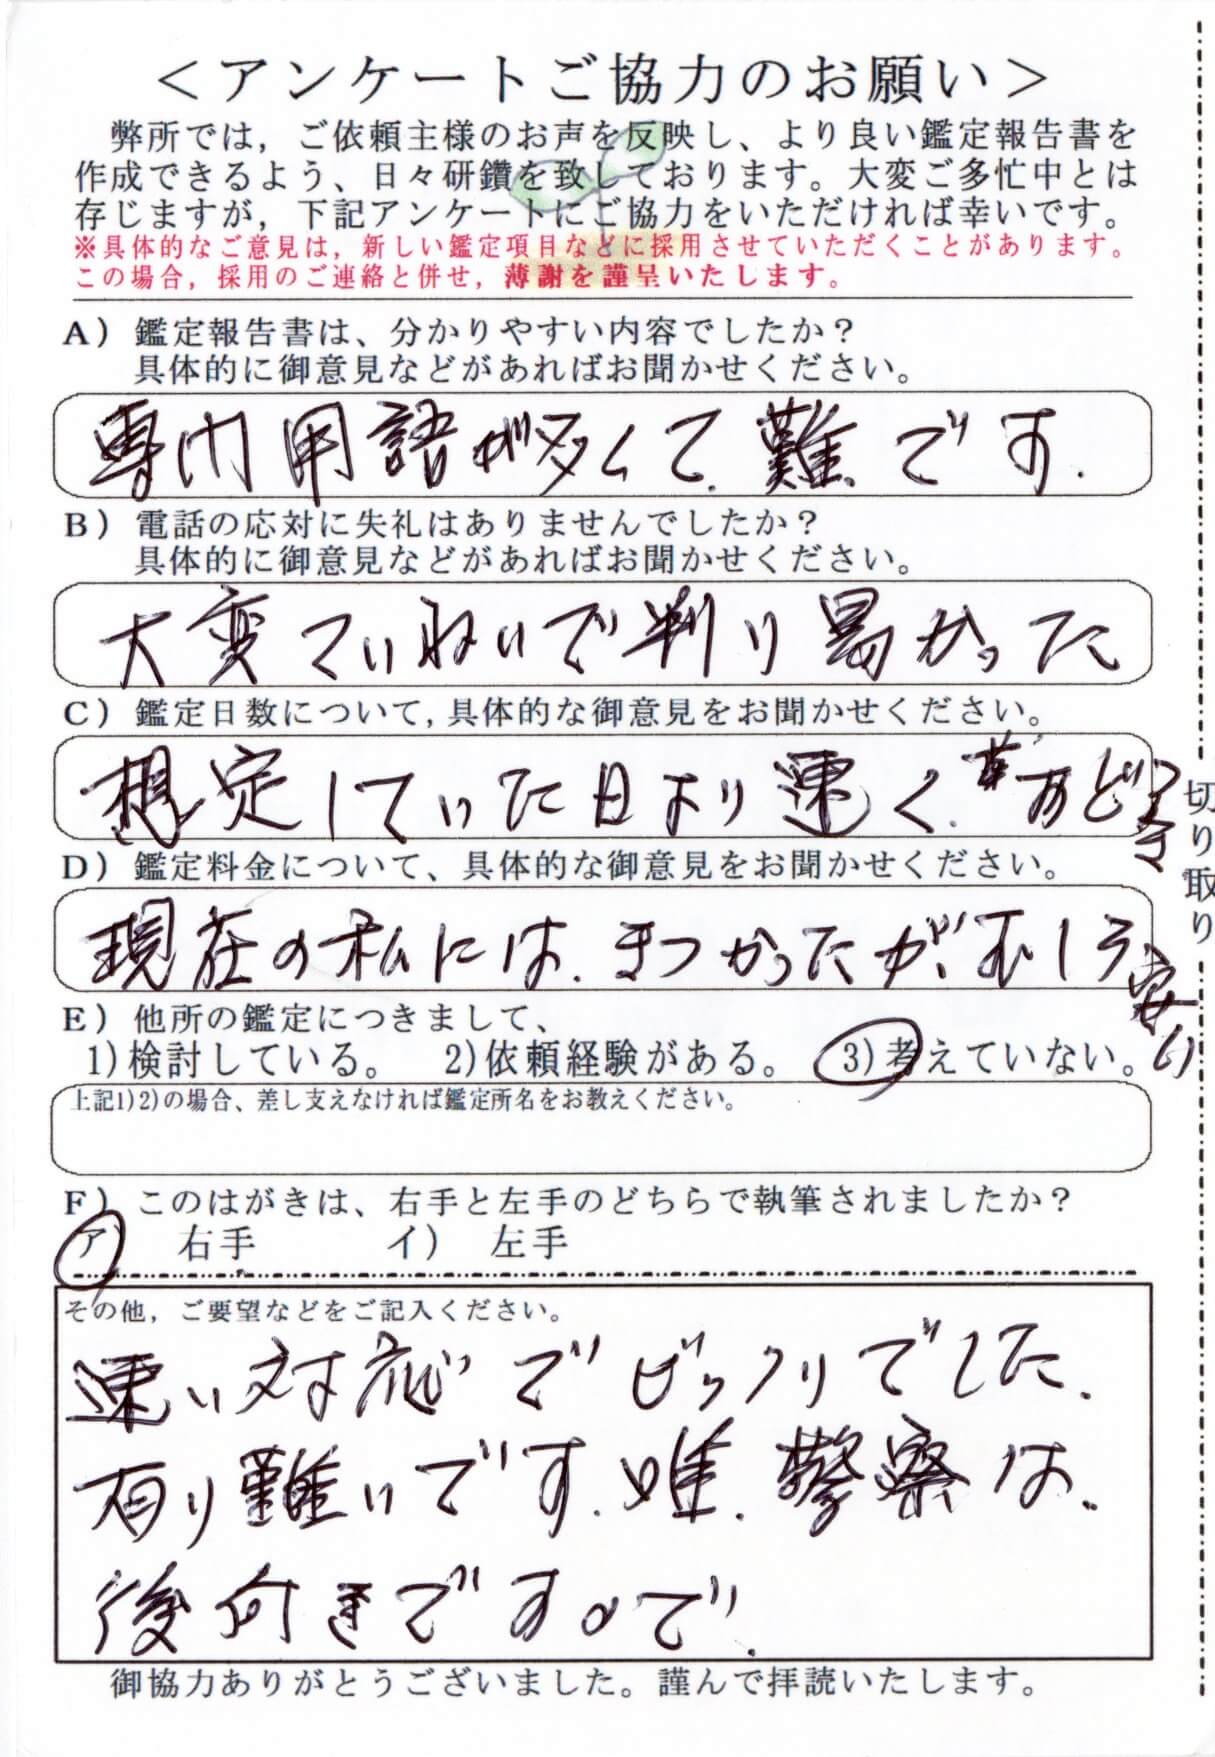 ＜アンケートご協力のお願い＞
弊所では，ご依頼主様のお声を反映し、より良い鑑定報告書を
作成できるよう、日々研鑽を致しております。大変ご多忙中とは
存じますが，下記アンケートにご協力をいただければ幸いです。
※具体的なご意見は，新しい鑑定項目などに採用させていただくことがあります。
この場合，採用のご連絡と併せ，薄謝を謹呈いたします。
A）鑑定報告書は、分かりやすい内容でしたか？
具体的に御意見などがあればお聞かせください。
専門用語が多くて．難．です．
B）電話の応対に失礼はありませんでしたか？
具体的に御意見などがあればお聞かせください。
大変ていねいで判り易かった
C）鑑定日数について，具体的な御意見をお聞かせください。
想定していた日より速く．おどろき
D）鑑定料金について、具体的な御意見をお聞かせください。
現在の私には．きつかったが、むしろ安い
E）他所の鑑定につきまして、
1)検討している。 2)依頼経験がある。 3)考えていない。
上記1)2)の場合、差し支えなければ鑑定所名をお教えください。
F）このはがきは、右手と左手のどちらで執筆されましたか？
ア） 右手 イ） 左手
その他，ご要望などをご記入ください。
速い対応でビックリでした．
有り難いです．唯．警察は．
後向きですので．
御協力ありがとうございました。謹んで拝読いたします。
切り取り